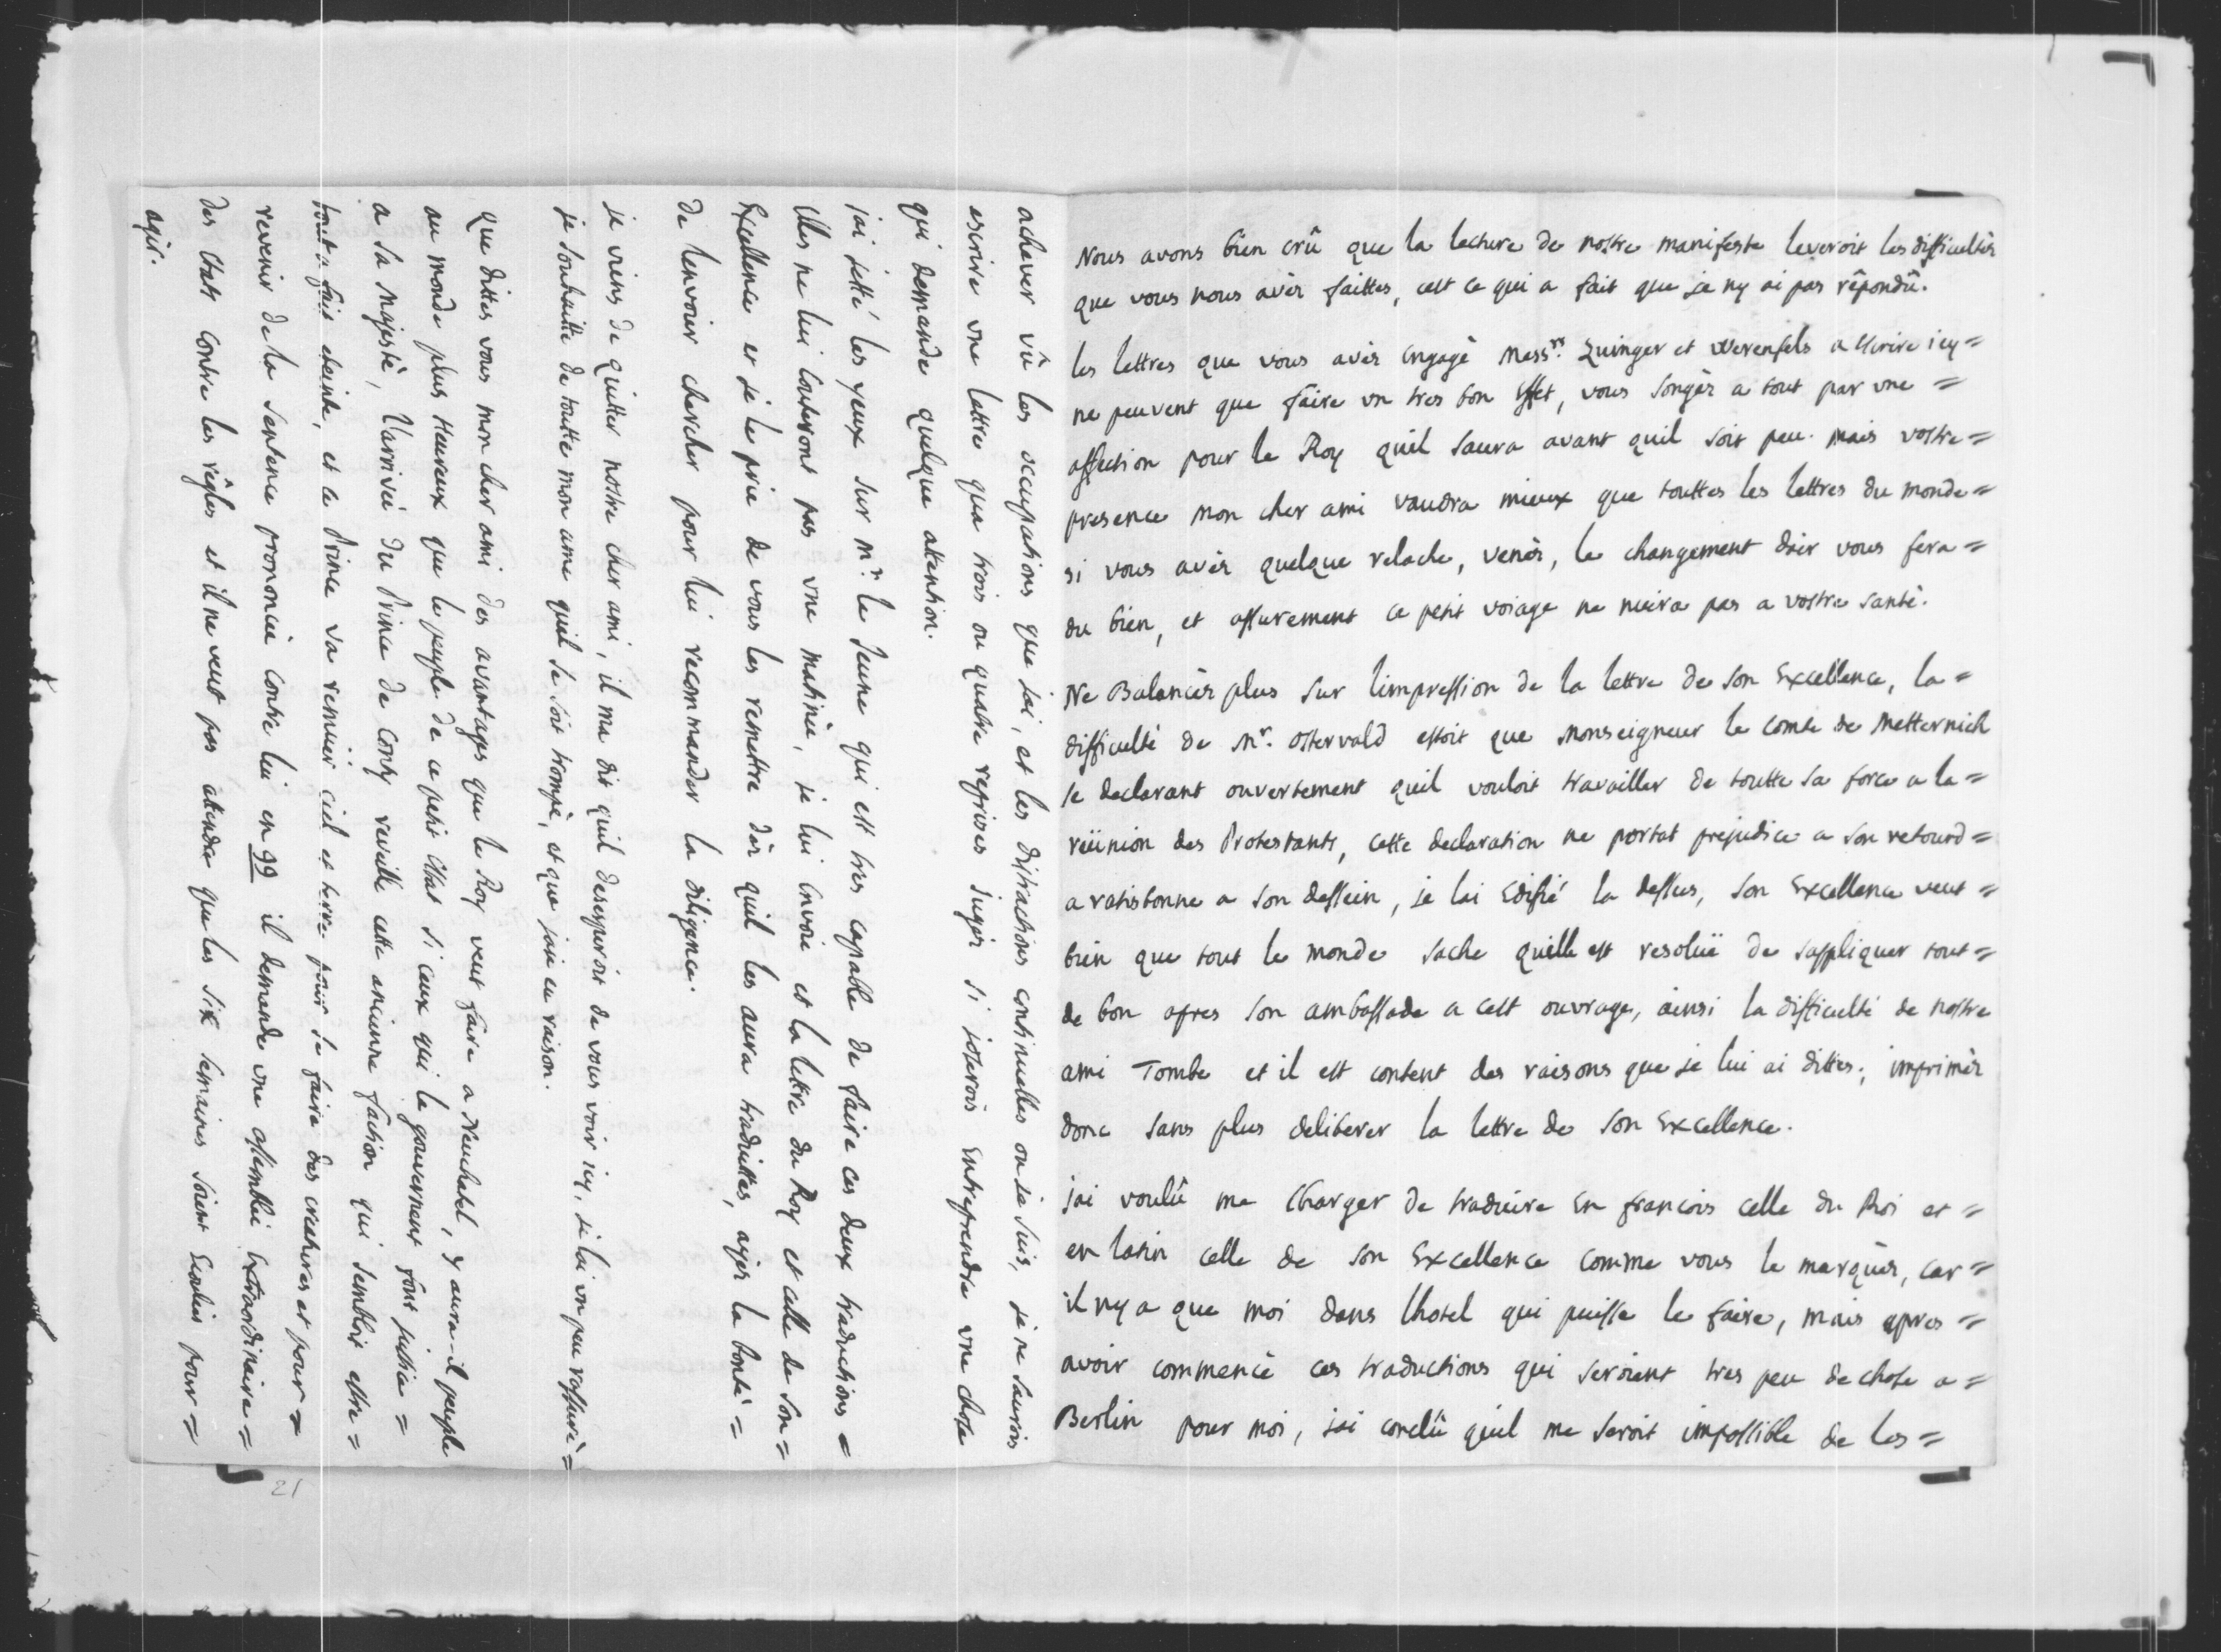 Nous avons bien crû que la lecture de nostre manifeste leveroit les difficultés
que vous nous avés faittes, cest ce qui a fait que je ny ai pas répondû.
les lettres que vous avés engagé Mess.rs Zuinger et Werenfels a escrire icy =
ne peuvent que faire un tres bon effet, vous songés a tout par une =
affection pour le Roy quil saura avant quil soit peu. mais vostre =
presence mon cher ami vaudra mieux que touttes les lettres du monde =
si vous avés quelque relache, venés, le changement dair vous fera =
du bien, et assurement ce petit voiage ne nuira pas a vostre santé.
Ne Balancés plus sur limpression de la lettre de son Excellence, la =
difficulté de Mr. Ostervald estoit que Monseigneur le Comte de Metternich
se declarant ouvertement quil vouloit travailler de toutte sa force a la =
reünion des Protestants, cette declaration ne portat prejudice a son retourd =
a ratisbonne a son dessein, je lai Edifié la dessus, son Excellence veut =
bien que tout le monde sache quelle est resolüe de sappliquer tout =
de bon apres son ambassade a cest ouvrage, ainsi la difficulté de nostre
ami Tombe et il est content des raisons que je lui ai dittes; imprimés
donc sans plus deliberer la lettre de son Excellence.
jai voulû me Charger de traduire en francois celle du Roi et =
en latin celle de son Excellence comme vous le marqués, car =
il ny a que moi dans lhotel qui puisse le faire, mais apres =
avoir commencé ces traductions qui seroient tres peu de chose a =
Berlin pour moi, jai conclû quil me seroit impossible de les =
achever vû les occupations que jai, et les distractions continuelles ou je suis, je ne saurois
escrire une lettre qua trois ou quatre reprises jugés si joserois Entreprendre une chose
qui demande quelque attention.
jai jetté les yeux sur Mr. le Jeune qui est tres capable de faire ces deux traductions =
Elles ne lui couteront pas une matinée, je lui envoie et la lettre du Roy et celle de son =
Excellence et je le prie de vous les remettre dés quil les aura traduittes, ayés la bonté =
de lenvoier chercher pour lui recommander la diligence.
je viens de quitter nostre cher ami, il ma dit quil desesperoit de vous voir icy, je lai un peu rassuré =
je souhaitte de toutte mon ame quil se soit trompé, et que jaie eu raison.
que dittes vous mon cher ami des avantages que le Roy veut faire a Neuchatel, y aura-il peuple
au monde plus Heureux que le peuple de ce petit Estat si ceux qui le gouvernent font justice =
a sa Majesté, l'arrivée du Prince de Conty reveille cette ancienne faction qui sembloit estre =
tout a fait eteinte, et ce Prince va remuer ciel et terre pour se faire des creatures et pour =
revenir de la sentence prononcée contre lui en 99 il demande une assemblée Extraordinaire =
des Estats contre les régles et il ne veut pas attendre que les six semaines soient Ecoulées pour =
agir.
21